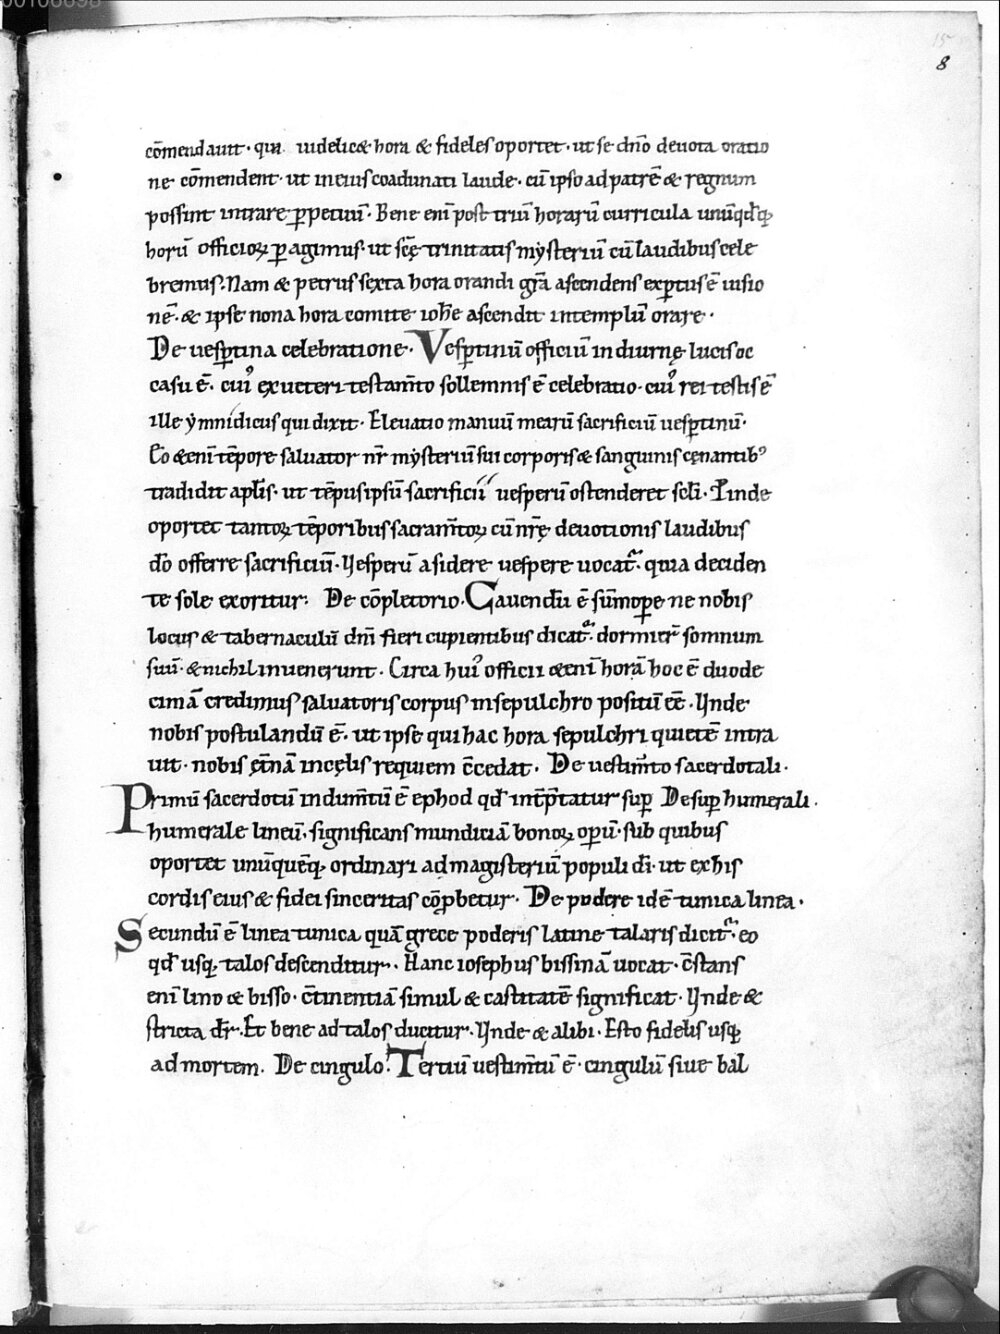 00106698
15
8
cōmendauit · qui uidelicet hora & fideles oportet · ut se dn̄o deuota oratio
ne cōmendent · ut in eius coadunati laude · cū ipso ad patrē & regnum
possint intrare ꝑpetuū · Bene eni post triū horarū curricula unūqđq
horū officioꝝ ꝑagimus · ut scę trinitatis mysteriū cū laudibus cele
bremus · Nam & petrus sexta hora orandi gr̄a ascendens exꝑtus ē uisio
nē · & ipse nona hora comite ioħe ascendit in templū orare ·
De uesꝑtina celebratione · Vesꝑtinū officiū in diurnę lucis oc
casu ē · cuiꝰ ex ueteri testam̄to sollemnis ē celebratio · cuiꝰ rei testis ē
ille ymnidicus qui dixit · Eleuatio manuū mearū sacrificiū uesꝑtinū ·
Eo & eni tēpore saluator nr̄ mysteriū sui corporis & sanguinis cenantibꝰ
tradidit apłis · ut tēpus ipsū sacrificii uesperū ostenderet scłi · Pinde
oportet tantoꝝ tēporibus sacram̄toꝝ cū nr̄ę deuotionis laudibus
do offerre sacrificiū · Vesperū a sidere uespere uocat̄ · quia deciden
te sole exoritur · De cōpletorio · Cauendū ē sūmoꝑe ne nobis
locus & tabernaculū dn̄i fieri cupientibus dicat̄ · dormier̄ somnum
suū · & nichil inuenerunt · Circa huiꝰ officii & eni horā hoc ē duode
cimā credimus saluatoris corpus in sepulchro positū eē · Vnde
nobis postulandū ē · ut ipse qui hac hora sepulchri quietē intra
uit · nobis ętnā in cęlis requiem c̄cedat · De uestim̄to sacerdotali ·
Primū sacerdotū indum̄tū ē ephod qđ int̄ꝑtatur suꝑ De suꝑ humerali ·
humerale lineū · significans mundiciā bonoꝝ oꝑū · sub quibus
oportet unūquēq ordinari ad magisteriū populi di · ut ex his
cordis eius & fidei sinceritas cōꝓbetur · De podere idē tunica linea ·
Secundū ē linea tunica quā grece poderis latine talaris dicit̄ · eo
qđ usq talos descenditur · Hanc iosephus bissinā uocat · c̄stans
eni lino & bisso · c̄tinentiā simul & castitatē significat · Vnde &
stricta dr̄ · Et bene ad talos ducitur · Vnde & alibi · Esto fidelis usq
ad mortem · De cingulo · Tertiū uestim̄tū ē · cingulū siue bal